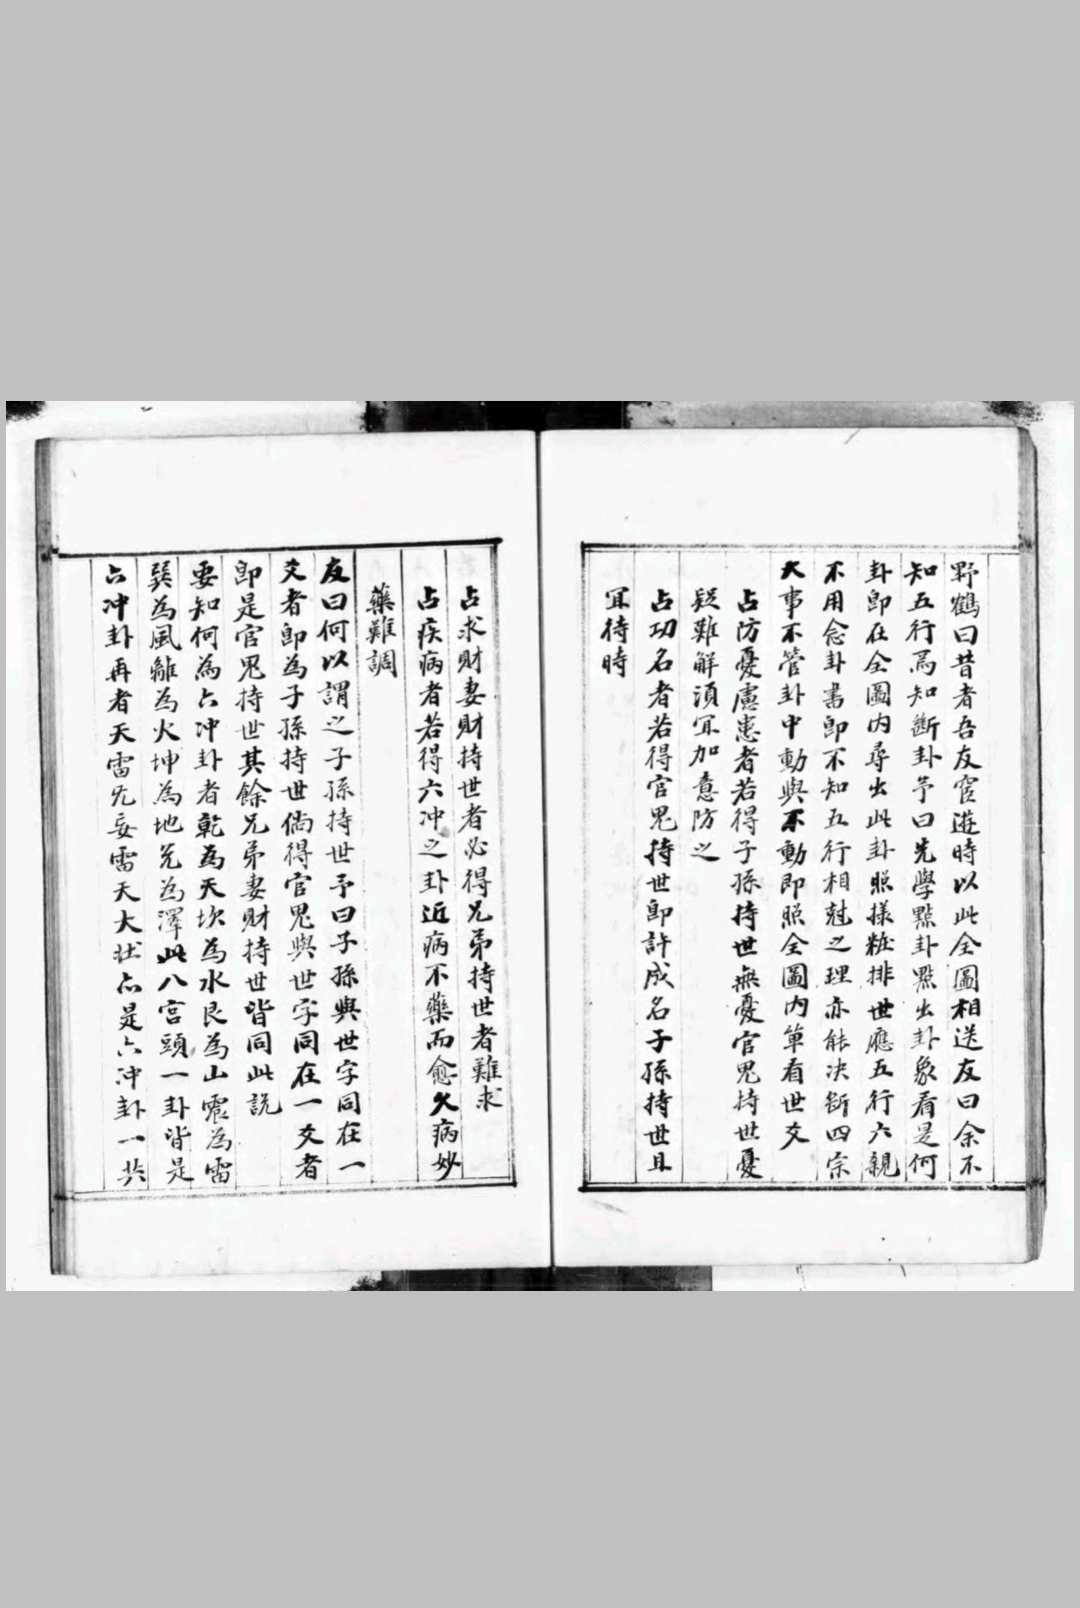 野鶴曰昔者吾友宦遊時以此全圖相送友曰余不
知五行焉知斷卦予曰先學點卦點出卦象看是何
卦即在全圖内尋出此卦照樣粧排世應五行六親
不用念卦書即不知五行相尅之理亦能决斷四宗
大事不管卦中動與不動即照全圖内單看世爻
占防憂慮患者若得子孫持世無憂官鬼持世憂
疑難解須宜加意防之
占功名者若得官鬼持世即許成名子孫持世且
宜待時
占求財妻財持世者必得兄弟持世者難求
占疾病者若得六冲之卦近病不藥而愈久病妙
藥難調
友曰何以謂之子孫持世予曰子孫與世字同在一
爻者即為子孫持世倘得官鬼與世字同在一爻者
即是官鬼持世其餘兄弟妻財持世皆同此説
要知何為六冲卦者乾為天坎為水艮為山震為雷
巽為風離為火坤為地兌為澤此八宫頭一卦皆是
六冲卦再者天雷无妄雷天大壮亦是六冲卦一共